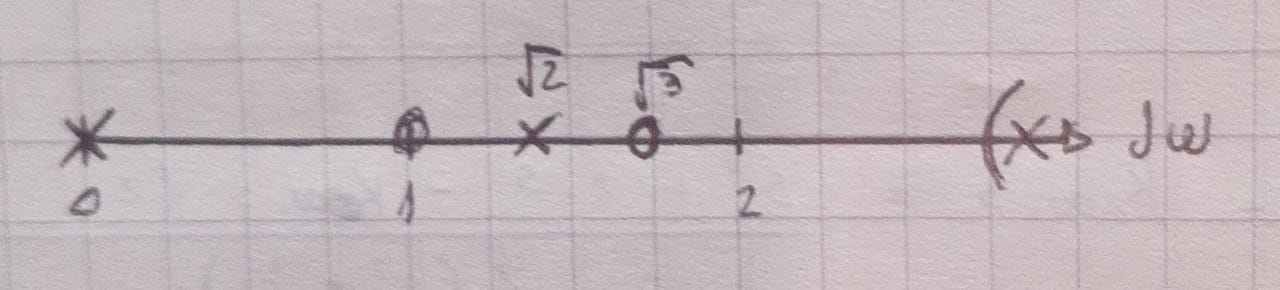 √2 √3
( x jω
0 1 2